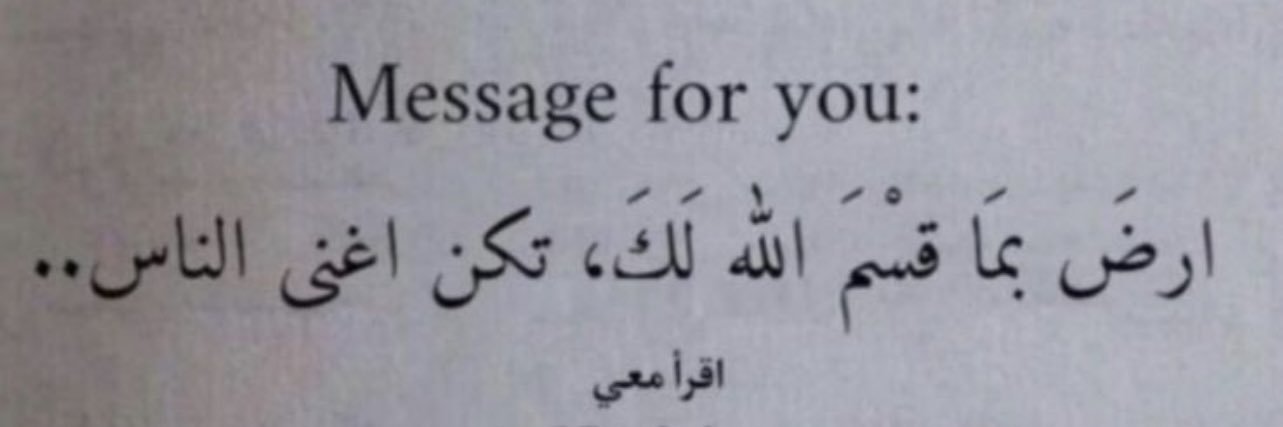 Message for you:
ارضَ بمَا قسْمَ الله لَكَ، تكن اغنى الناس..
اقرأ معي